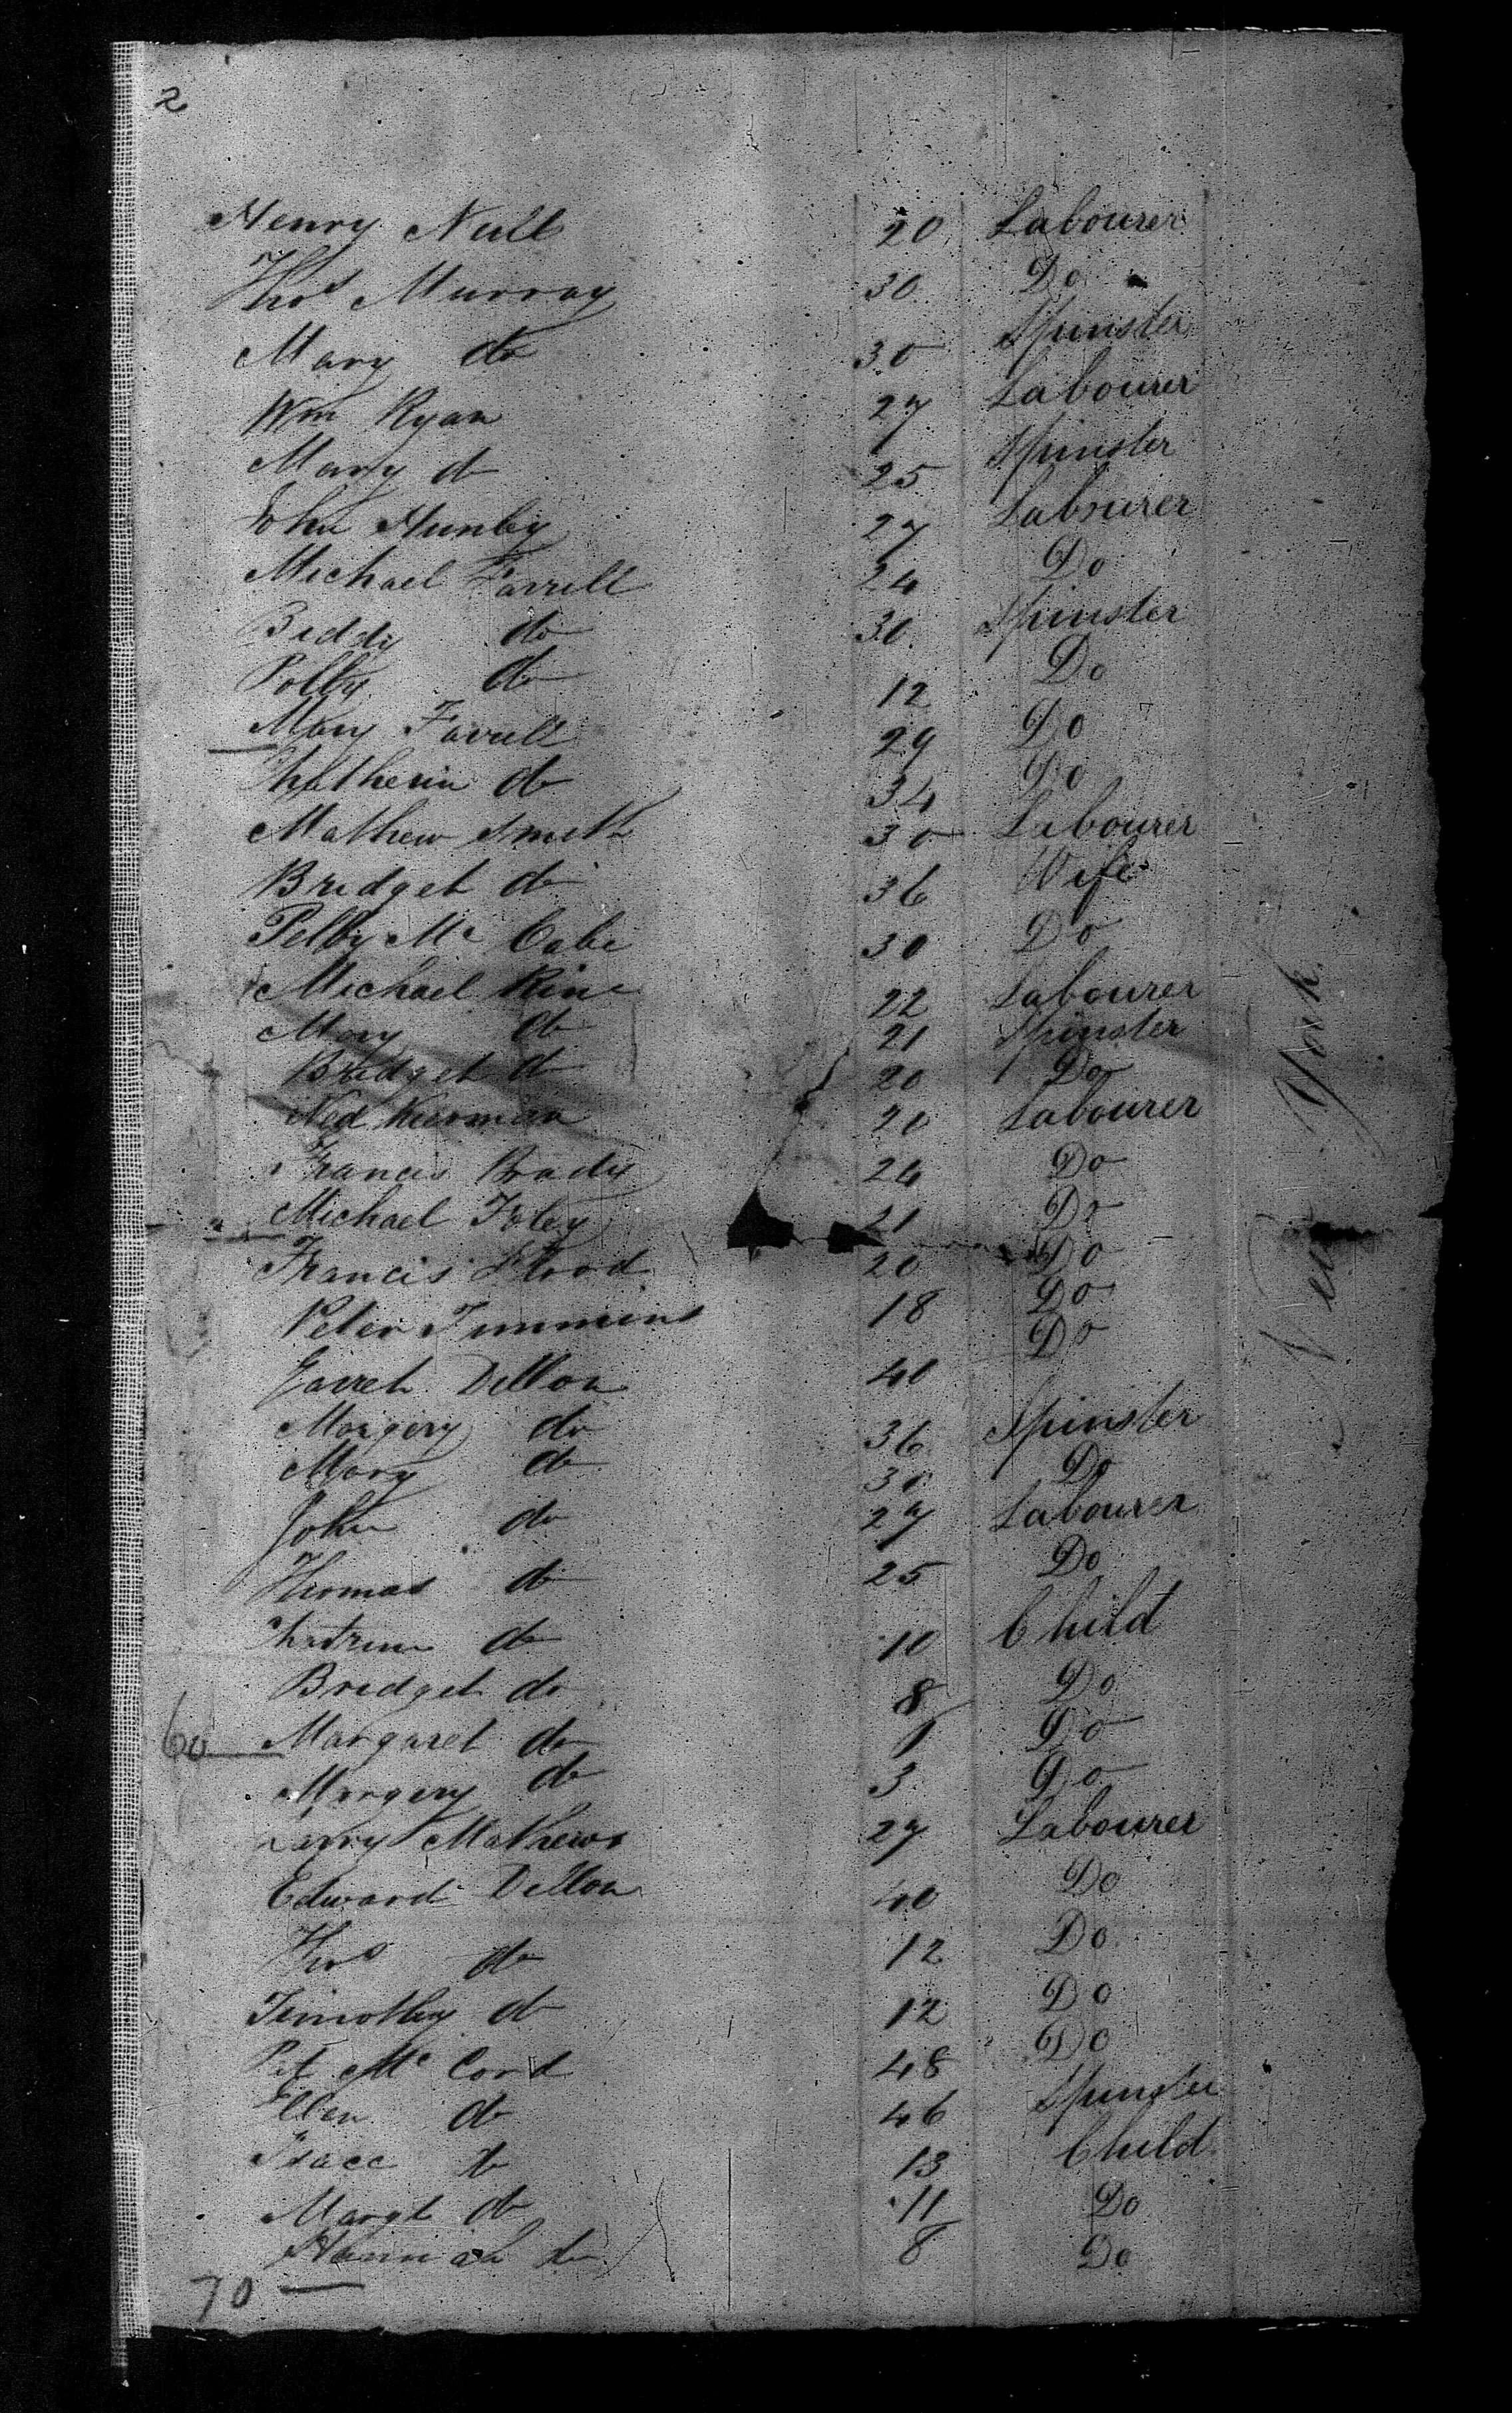 2
Henry Null 20 Labourer
Thos Murray 30 Do
Mary do 30 Spinster
Wm Ryan 27 Labourer
Mary do 25 Spinster
John Hunby 27 Labourer
Michael Farrell 24 Do
Biddy do 30 Spinster
Polly do 12 Do
Mary Farrell 29 Do
do 34 Do
Mathew Smith 30 Labourer
Bridget do 36 Wife
Mc Cabe 30 Do
Michael Rine 22 Labourer
Mary do 21 Spinster
Bridget do 20 Do
Ned Kiernan 20 Labourer
Francis Brady 24 Do
Michael Foley 21 Do
Francis Flood 20 Do
Peter Timmins 18 Do
Garret Dillon 40 Do
Margery do 36 Spinster
Mary do 30 Do
John do 27 Labourer
Thomas do 25 Do
do 10 Child
Bridget do 8 Do
60 Margaret do 1 Do
Margery do 3 Do
Larry Mathews 27 Labourer
Edward Dillon 40 Do
Thos do 12 Do
Timothy do 12 Do
Pat Mc Cord 48 Do
Ellen do 46 Spinster
Isacc do 13 Child
Margt do 11 Do
Hannah do 8 Do
70
New York